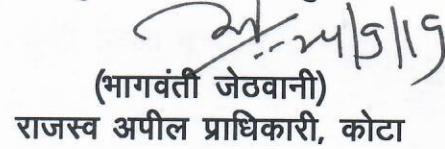 24/9/19
(भागवंती जेठवानी)
राजस्व अपील प्राधिकारी, कोटा